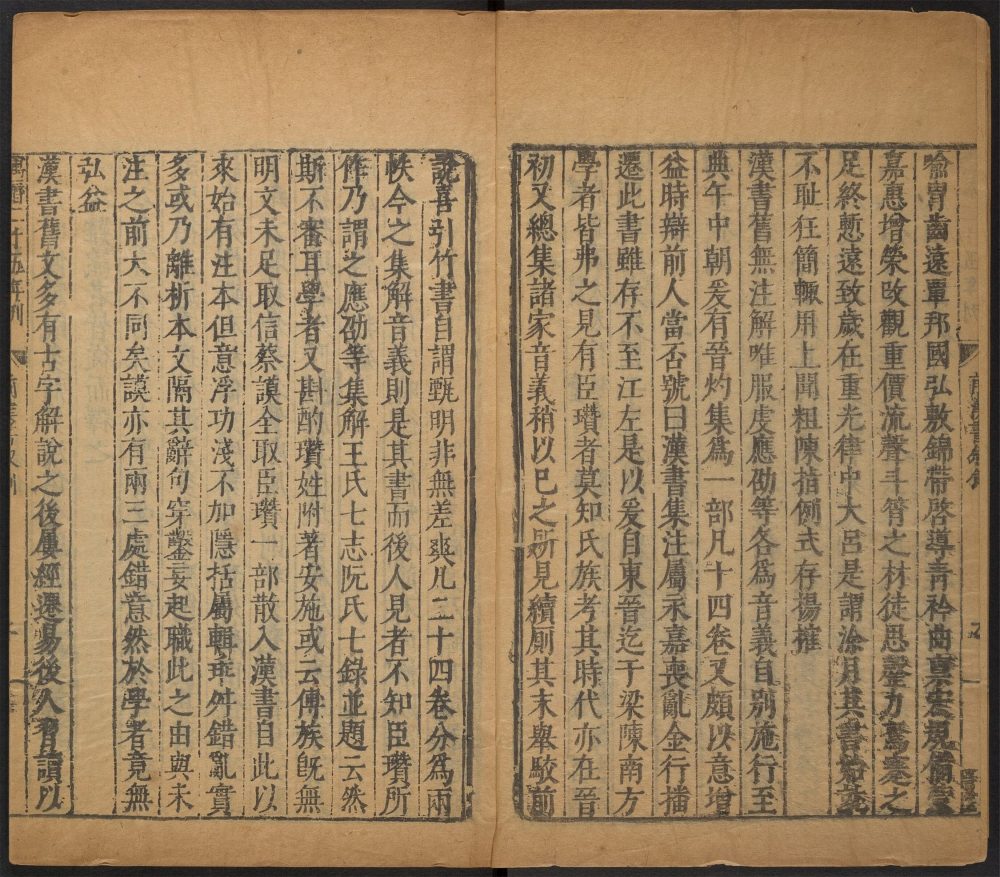 喻胄齒遠覃邦國弘敷錦帶啓導青衿曲稟宏規備蒙
嘉惠增榮改觀重價流聲斗筲之材徒思罄力駑蹇之
足終慙遠致歲在重光律中大呂是謂涂月其書始就
不耻狂簡輒用上聞粗陳指例式存揚搉
漢書舊無注解唯服虔應劭等各爲音義自別施行至
典午中朝爰有晉灼集爲一部凡十四卷又頗以意增
益時辯前人當否號曰漢書集注屬永嘉喪亂金行播
遷此書雖存不至江左是以爰自東晉迄于梁陳南方
學者皆弗之見有臣瓚者莫知氏族考其時代亦在晉
初又總集諸家音義稍以已之所見續厠其末舉駮前
說喜引竹書自謂甄明非無差爽凡二十四卷分爲兩
帙今之集解音義則是其書而後人見者不知臣瓚所
作乃謂之應劭等集解王氏七志阮氏七錄並題云然
斯不審耳學者又斟酌瓚姓附著安施或云傅族旣無
明文未足取信蔡謨全取臣瓚一部散入漢書自此以
來始有注本但意浮功淺不加隱括屬輯乖舛錯亂實
多或乃離析本文隔其辭句穿鑿妄起職此之由與未
注之前大不同矣謨亦有兩三處錯意然於學者竟無
弘益
漢書舊文多有古字解說之後屢經遷易後人習讀以
萬曆二十五年刊